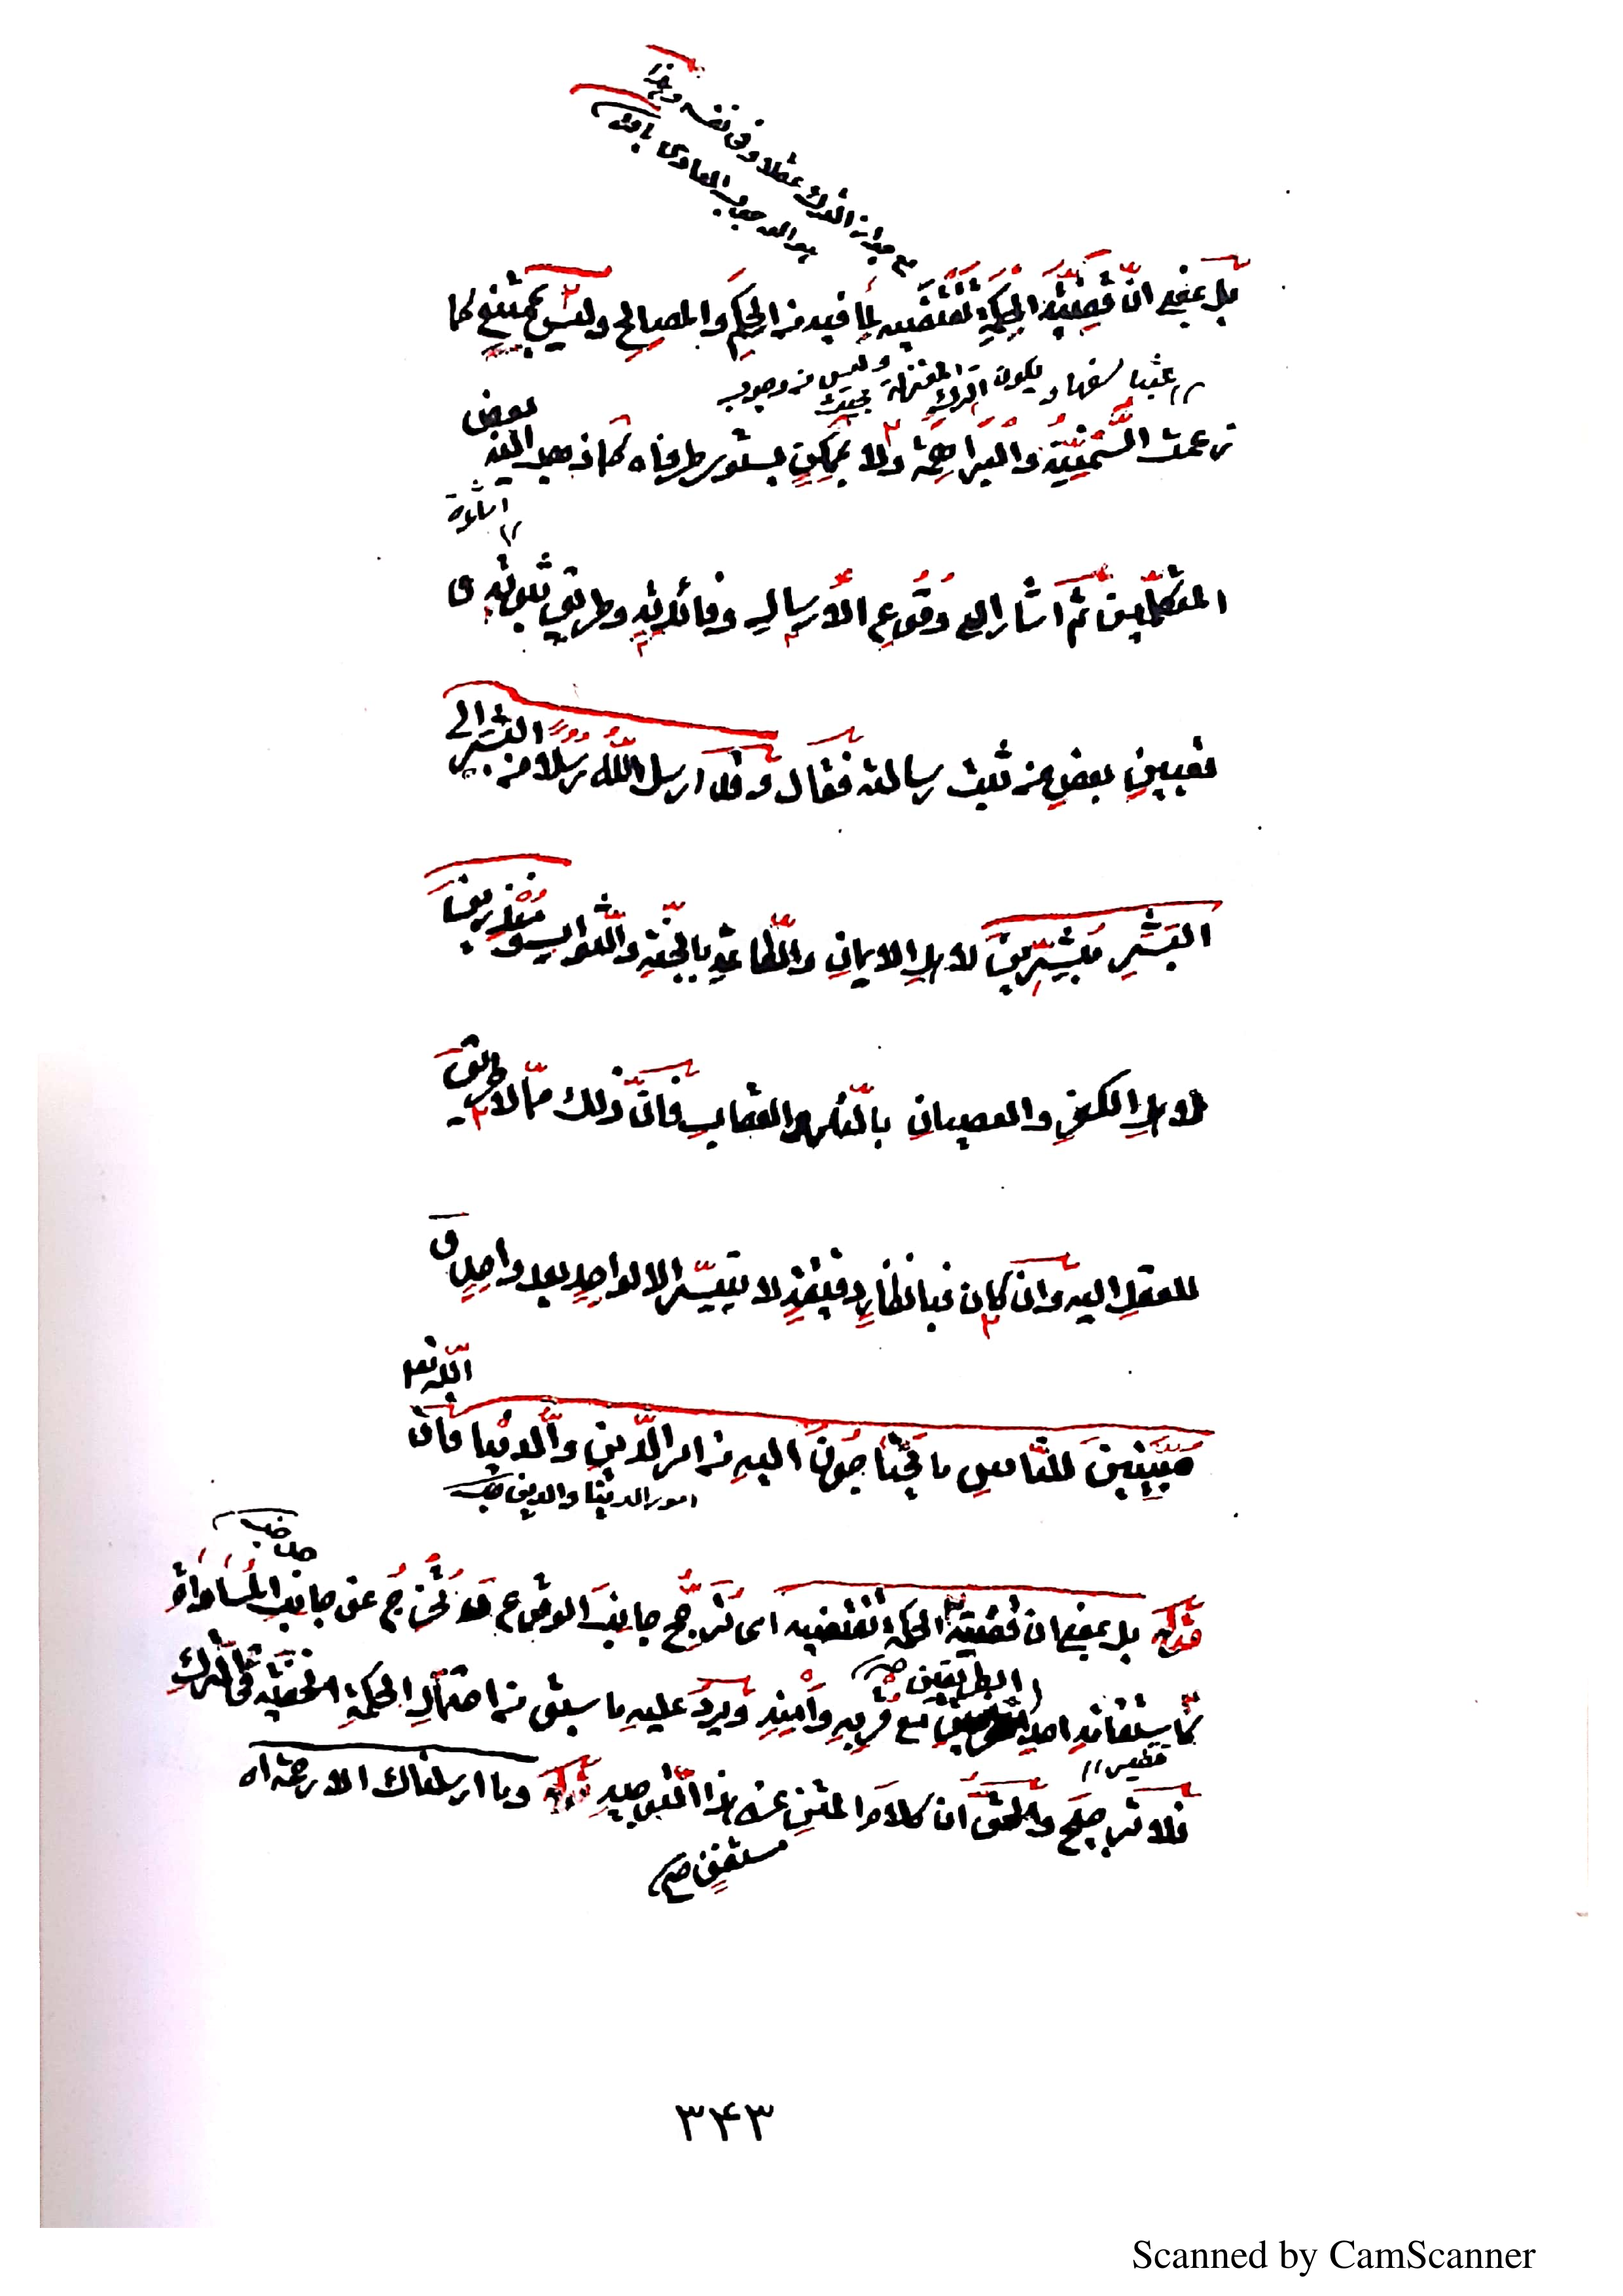 مع جواز الترك عقلا وفى نفسه وهذا
هو الوجوب العادى بافند
بل بمعنى انّ قضيّة الحكمة تقتضيه لما فيه من الحِكَم والمصالح وليس بممتنع كما
عبثا سفها و يكون الترك
وليس من وجوب المعتزلة بحيث
زعمت السُّمَنِيّة والبراهمة ولا بممكن يستوى طرفاه كما ذهب اليه بعض
اشاعرة
المتكلّمين ثم اشار الى وقوع الارسال وفائدته وطريق ثبوته و
تعيين بعض من ثبت رسالته فقال وقد ارسل اللّه رسلا من البشر الى
البشر مبشّرين لاهل الايمان والطّاعة بالجنّة والثّواب و منذرين
لاهل الكفر والعصيان بالنّار والعقاب فانّ ذلك ممّا لا طريق
للعقل اليه وان كان فبانظار دقيقة لا يتيسّر الا لواحد بعد واحد و
اللّه تع
مبيّنين للنّاس ما يحتاجون اليه من امر الدّين والدّنيا فانه
امور الدنيا والدين
قوله بل بمعنى ان قضية الحكمة تقتضيه اى تُرَجِّح جانب الوقوع و تُخرج عن جانب المساواة
الطريقين
كما ستقامة احد مع قربه وامنه ويرد عليه ما سبق من احتمال الحكمة الخفيّة فى الترك
فلا ترجيح والحق ان كلام المتن عن هذا التوجيه قوله وما ارسلناك الا رحمة اه
مستغن
٣٤٣
Scanned by CamScanner